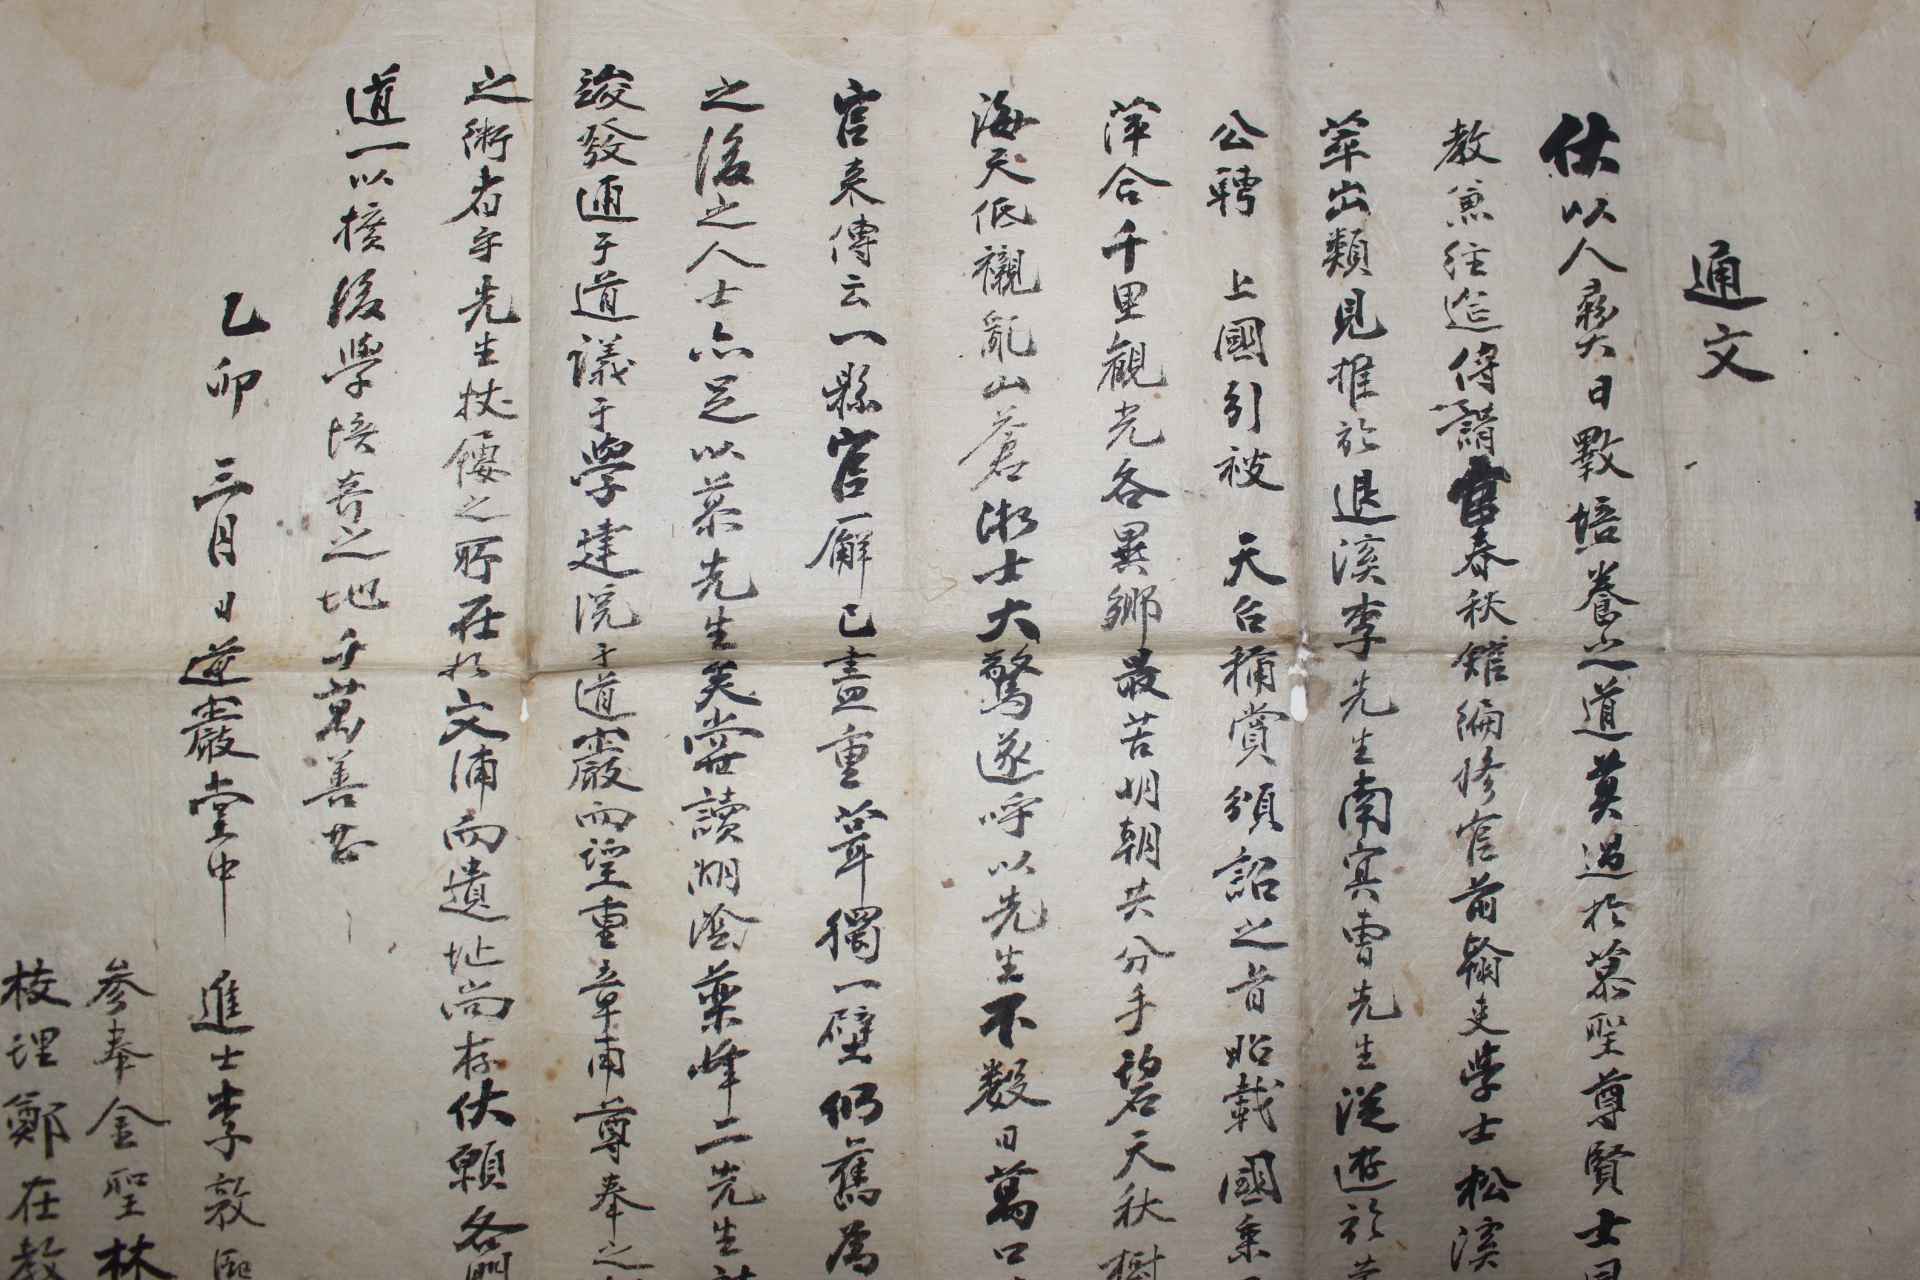 通文
伏以人彛大日斁培養之道莫過於慕聖尊賢士
教兼經筵侍講官春秋館編修官前翰吏學士松溪
萃出類見推於退溪李先生南冥曺先生從遊於
公聘 上國引被 天台稱賞頒詔之昔昭載國乘
萍合千里觀光各異鄉最苦明朝共分手碧天秋樹
海天低襯亂山蒼浙士大驚遂呼以先生不數日萬口
官來傳云一縣官廨已盡重葺獨一壁仍舊爲
之後之人士亦足以慕先生矣嘗讀湖陰藥峰二先生
竣發通于道議于學建院于道巖而望重章甫尊奉之
之術者乎先生杖屨之所在於文浦而遺址尚存伏願各門
道一以擴後學培養之地千萬善甚
乙卯三月日道巖堂中 進士李敦
參奉金聖林
校理鄭在教